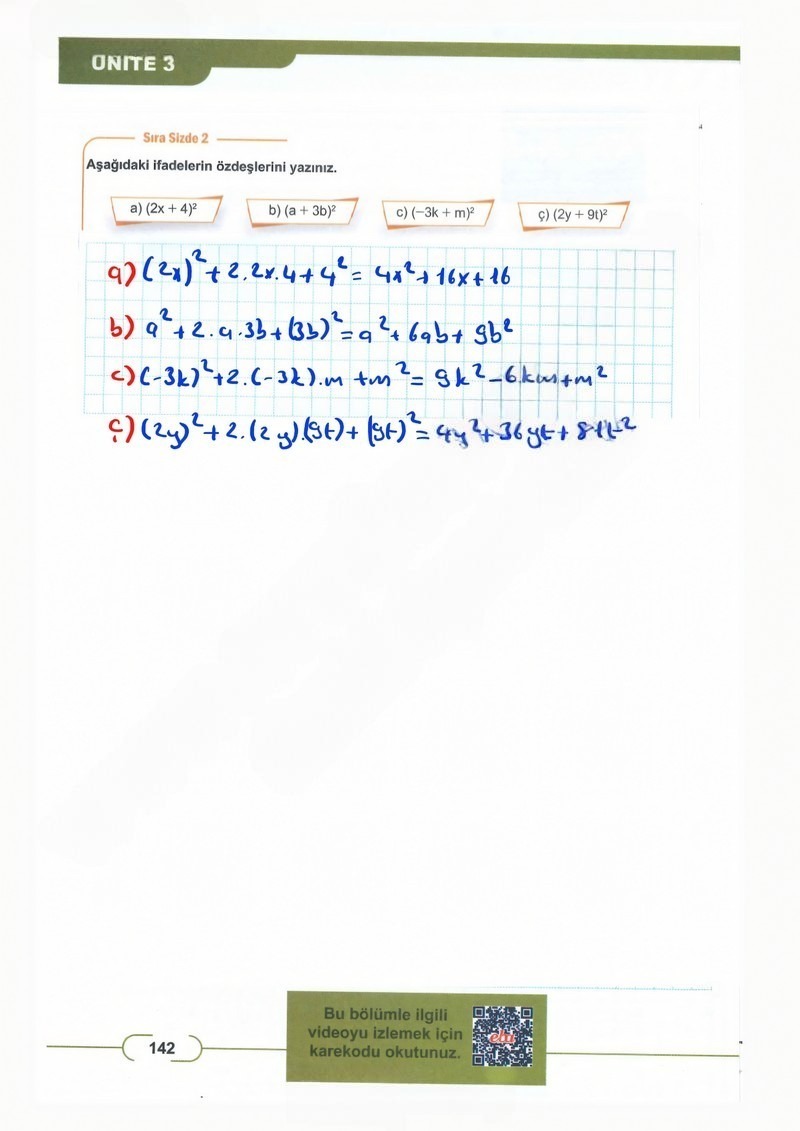 ÜNİTE 3
Sıra Sizde 2
Aşağıdaki ifadelerin özdeşlerini yazınız.
a) (2x + 4)² b) (a + 3b)² c) (−3k + m)² ç) (2y + 9t)²
a) (2x)² + 2.2x.4 + 4² = 4x² + 16x + 16
b) a² + 2.a.3b + (3b)² = a² + 6ab + 9b²
c) (-3k)² + 2.(-3k).m + m² = 9k² - 6km + m²
ç) (2y)² + 2.(2y).(9t) + (9t)² = 4y² + 36yt + 81t²
Bu bölümle ilgili
videoyu izlemek için
karekodu okutunuz.
142